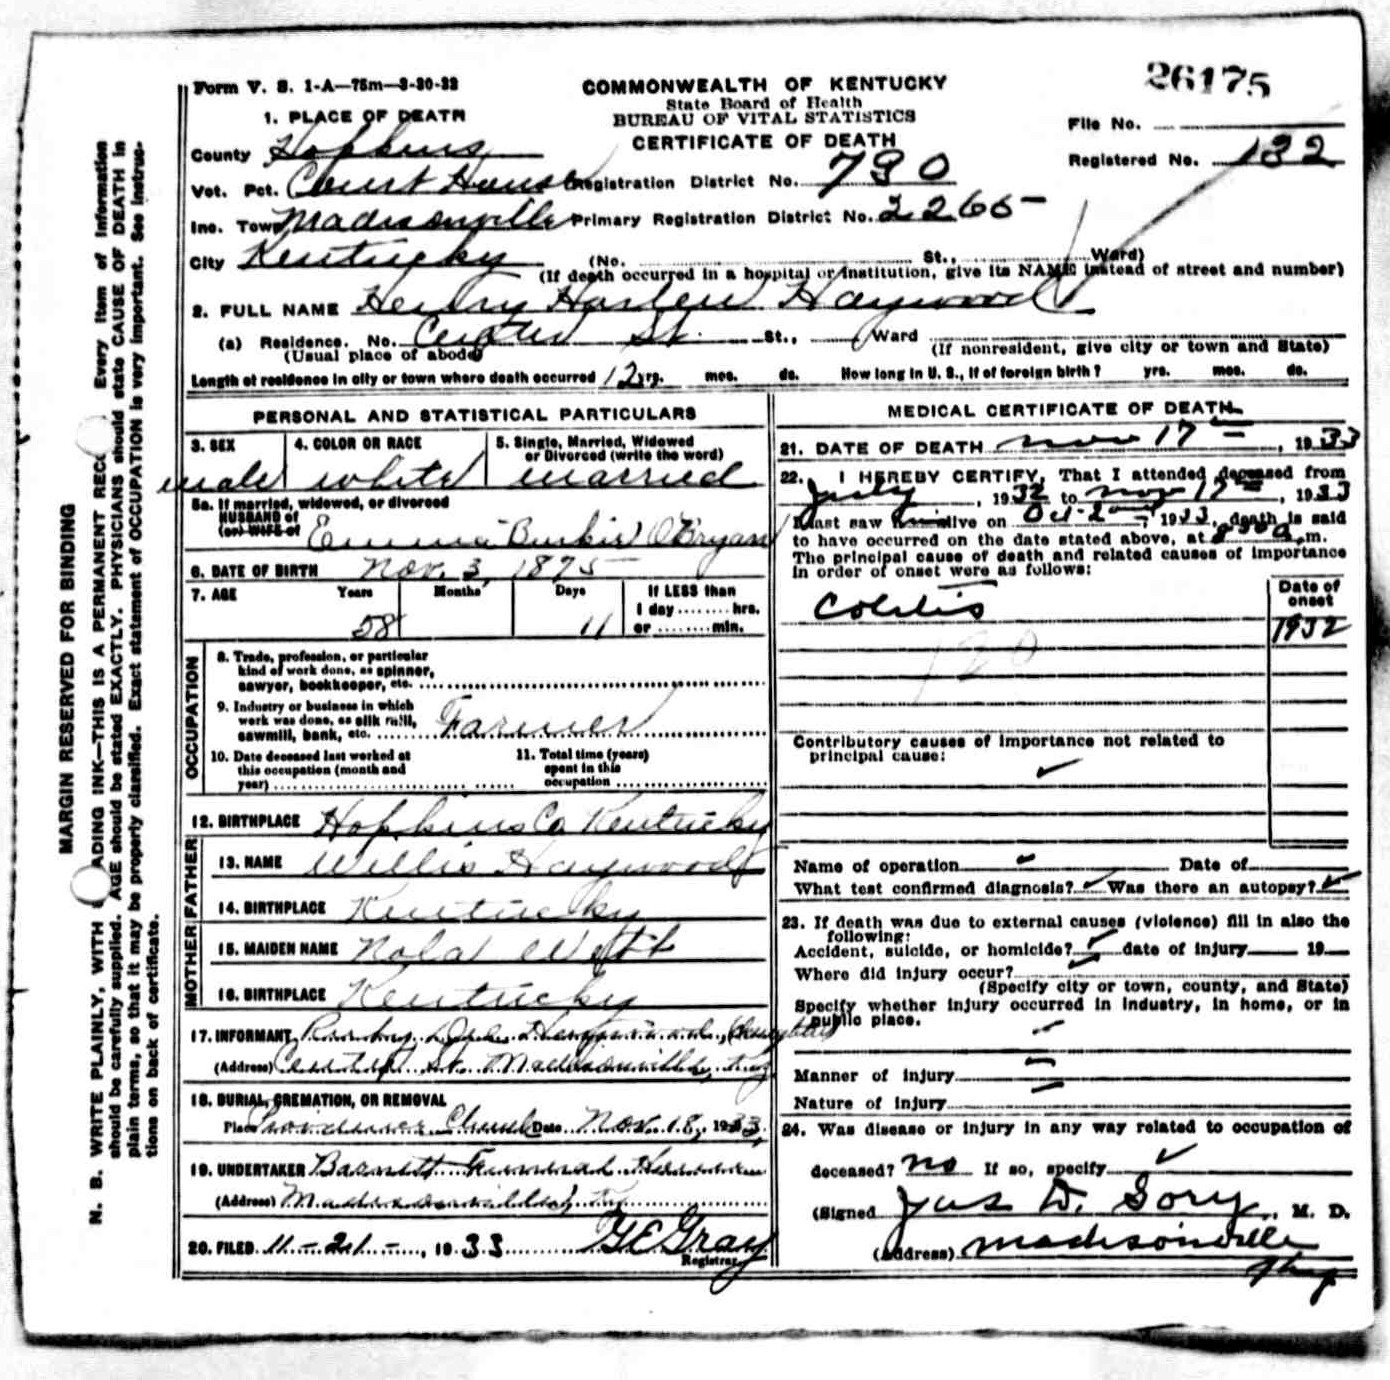 Form V. S. 1-A—75m—3-30-32
COMMONWEALTH OF KENTUCKY
State Board of Health
BUREAU OF VITAL STATISTICS
CERTIFICATE OF DEATH
26175
File No.
Registered No. 132
1. PLACE OF DEATH
County Hopkins
Vot. Pct. Court House Registration District No. 790
Inc. Town Madisonville Primary Registration District No. 2265
City Kentucky (No. St., Ward)
(If death occurred in a hospital or institution, give its NAME instead of street and number)
2. FULL NAME Henry Harlen Haywood
(a) Residence. No. Center St. St., Ward
(Usual place of abode) (If nonresident, give city or town and State)
Length of residence in city or town where death occurred 12 yrs. mos. ds. How long in U. S., if of foreign birth? yrs. mos. ds.
PERSONAL AND STATISTICAL PARTICULARS
3. SEX 4. COLOR OR RACE 5. Single, Married, Widowed
or Divorced (write the word)
male white married
5a. If married, widowed, or divorced
HUSBAND of
(or) WIFE of Emma O'Bryan
6. DATE OF BIRTH Nov. 3, 1875
7. AGE Years Months Days If LESS than
1 day ........ hrs.
58 11 or ........ min.
OCCUPATION
8. Trade, profession, or particular
kind of work done, as spinner,
sawyer, bookkeeper, etc.
9. Industry or business in which
work was done, as silk mill,
sawmill, bank, etc. Farmer
10. Date deceased last worked at
this occupation (month and
year)
11. Total time (years)
spent in this
occupation
12. BIRTHPLACE Hopkins Co Kentucky
FATHER
13. NAME Willis Haywood
14. BIRTHPLACE Kentucky
MOTHER
15. MAIDEN NAME Nola
16. BIRTHPLACE Kentucky
17. INFORMANT Haywood, (daughter)
(Address) Center St. Madisonville, Ky
18. BURIAL, CREMATION, OR REMOVAL
Place Providence Church Date Nov. 18, 1933,
19. UNDERTAKER Barnett Funeral Home
(Address) Madisonville, Ky
20. FILED 11-21-, 1933 G E Gray
Registrar
MEDICAL CERTIFICATE OF DEATH
21. DATE OF DEATH Nov 17, 1933
22. I HEREBY CERTIFY, That I attended deceased from
July, 1932 to Nov 17, 1933
I last saw him alive on Oct 2, 1933, death is said
to have occurred on the date stated above, at a.m.
The principal cause of death and related causes of importance
in order of onset were as follows:
Date of
onset
Colitis
1932
120
Contributory causes of importance not related to
principal cause:
Name of operation Date of
What test confirmed diagnosis? Was there an autopsy?
23. If death was due to external causes (violence) fill in also the
following:
Accident, suicide, or homicide? date of injury 19
Where did injury occur?
(Specify city or town, county, and State)
Specify whether injury occurred in industry, in home, or in
public place.
Manner of injury
Nature of injury
24. Was disease or injury in any way related to occupation of
deceased? no If so, specify
(Signed Jas D. Sory, M. D.
(Address) Madisonville
Ky
MARGIN RESERVED FOR BINDING
N. B. WRITE PLAINLY, WITH ADING INK—THIS IS A PERMANENT RECO Every item of information
should be carefully supplied. AGE should be stated EXACTLY. PHYSICIANS should state CAUSE OF DEATH in
plain terms, so that it may be properly classified. Exact statement of OCCUPATION is very important. See instruc-
tions on back of certificate.